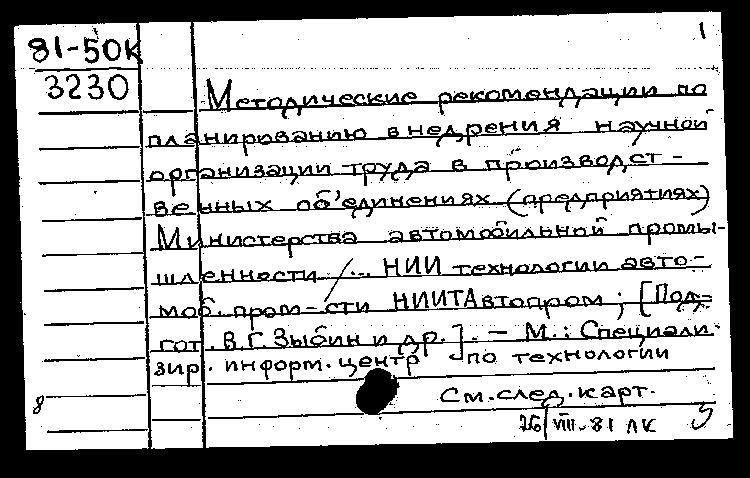 1
81-50К
3230
Методические рекомендации по
планированию внедрения научной
организации труда в производст-
венных об'единениях (предприятиях)
Министерства автомобильной промы-
шленности /... НИИ технологии авто-
моб. пром-сти НИИТАвтопром; [Под-
гот. В.Г. Зыбин и др.]. - М.: Специали-
зир. информ. центр по технологии
См. след. карт.
8
26/VIII-81 ЛК